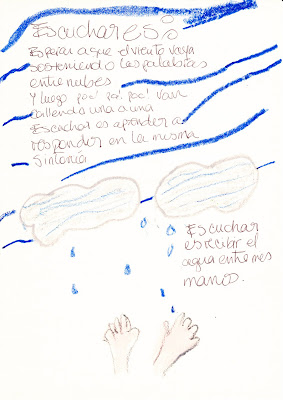 Escuchar es:
Esperar a que el viento vaya
sosteniendo las palabras
entre nubes
Y luego ¡pa! ¡pa! ¡pa! van
callendo una a una
Escuchar es aprender a
responder en la misma
Sintonía
Escuchar
es recibir el
agua entre mis
manos.